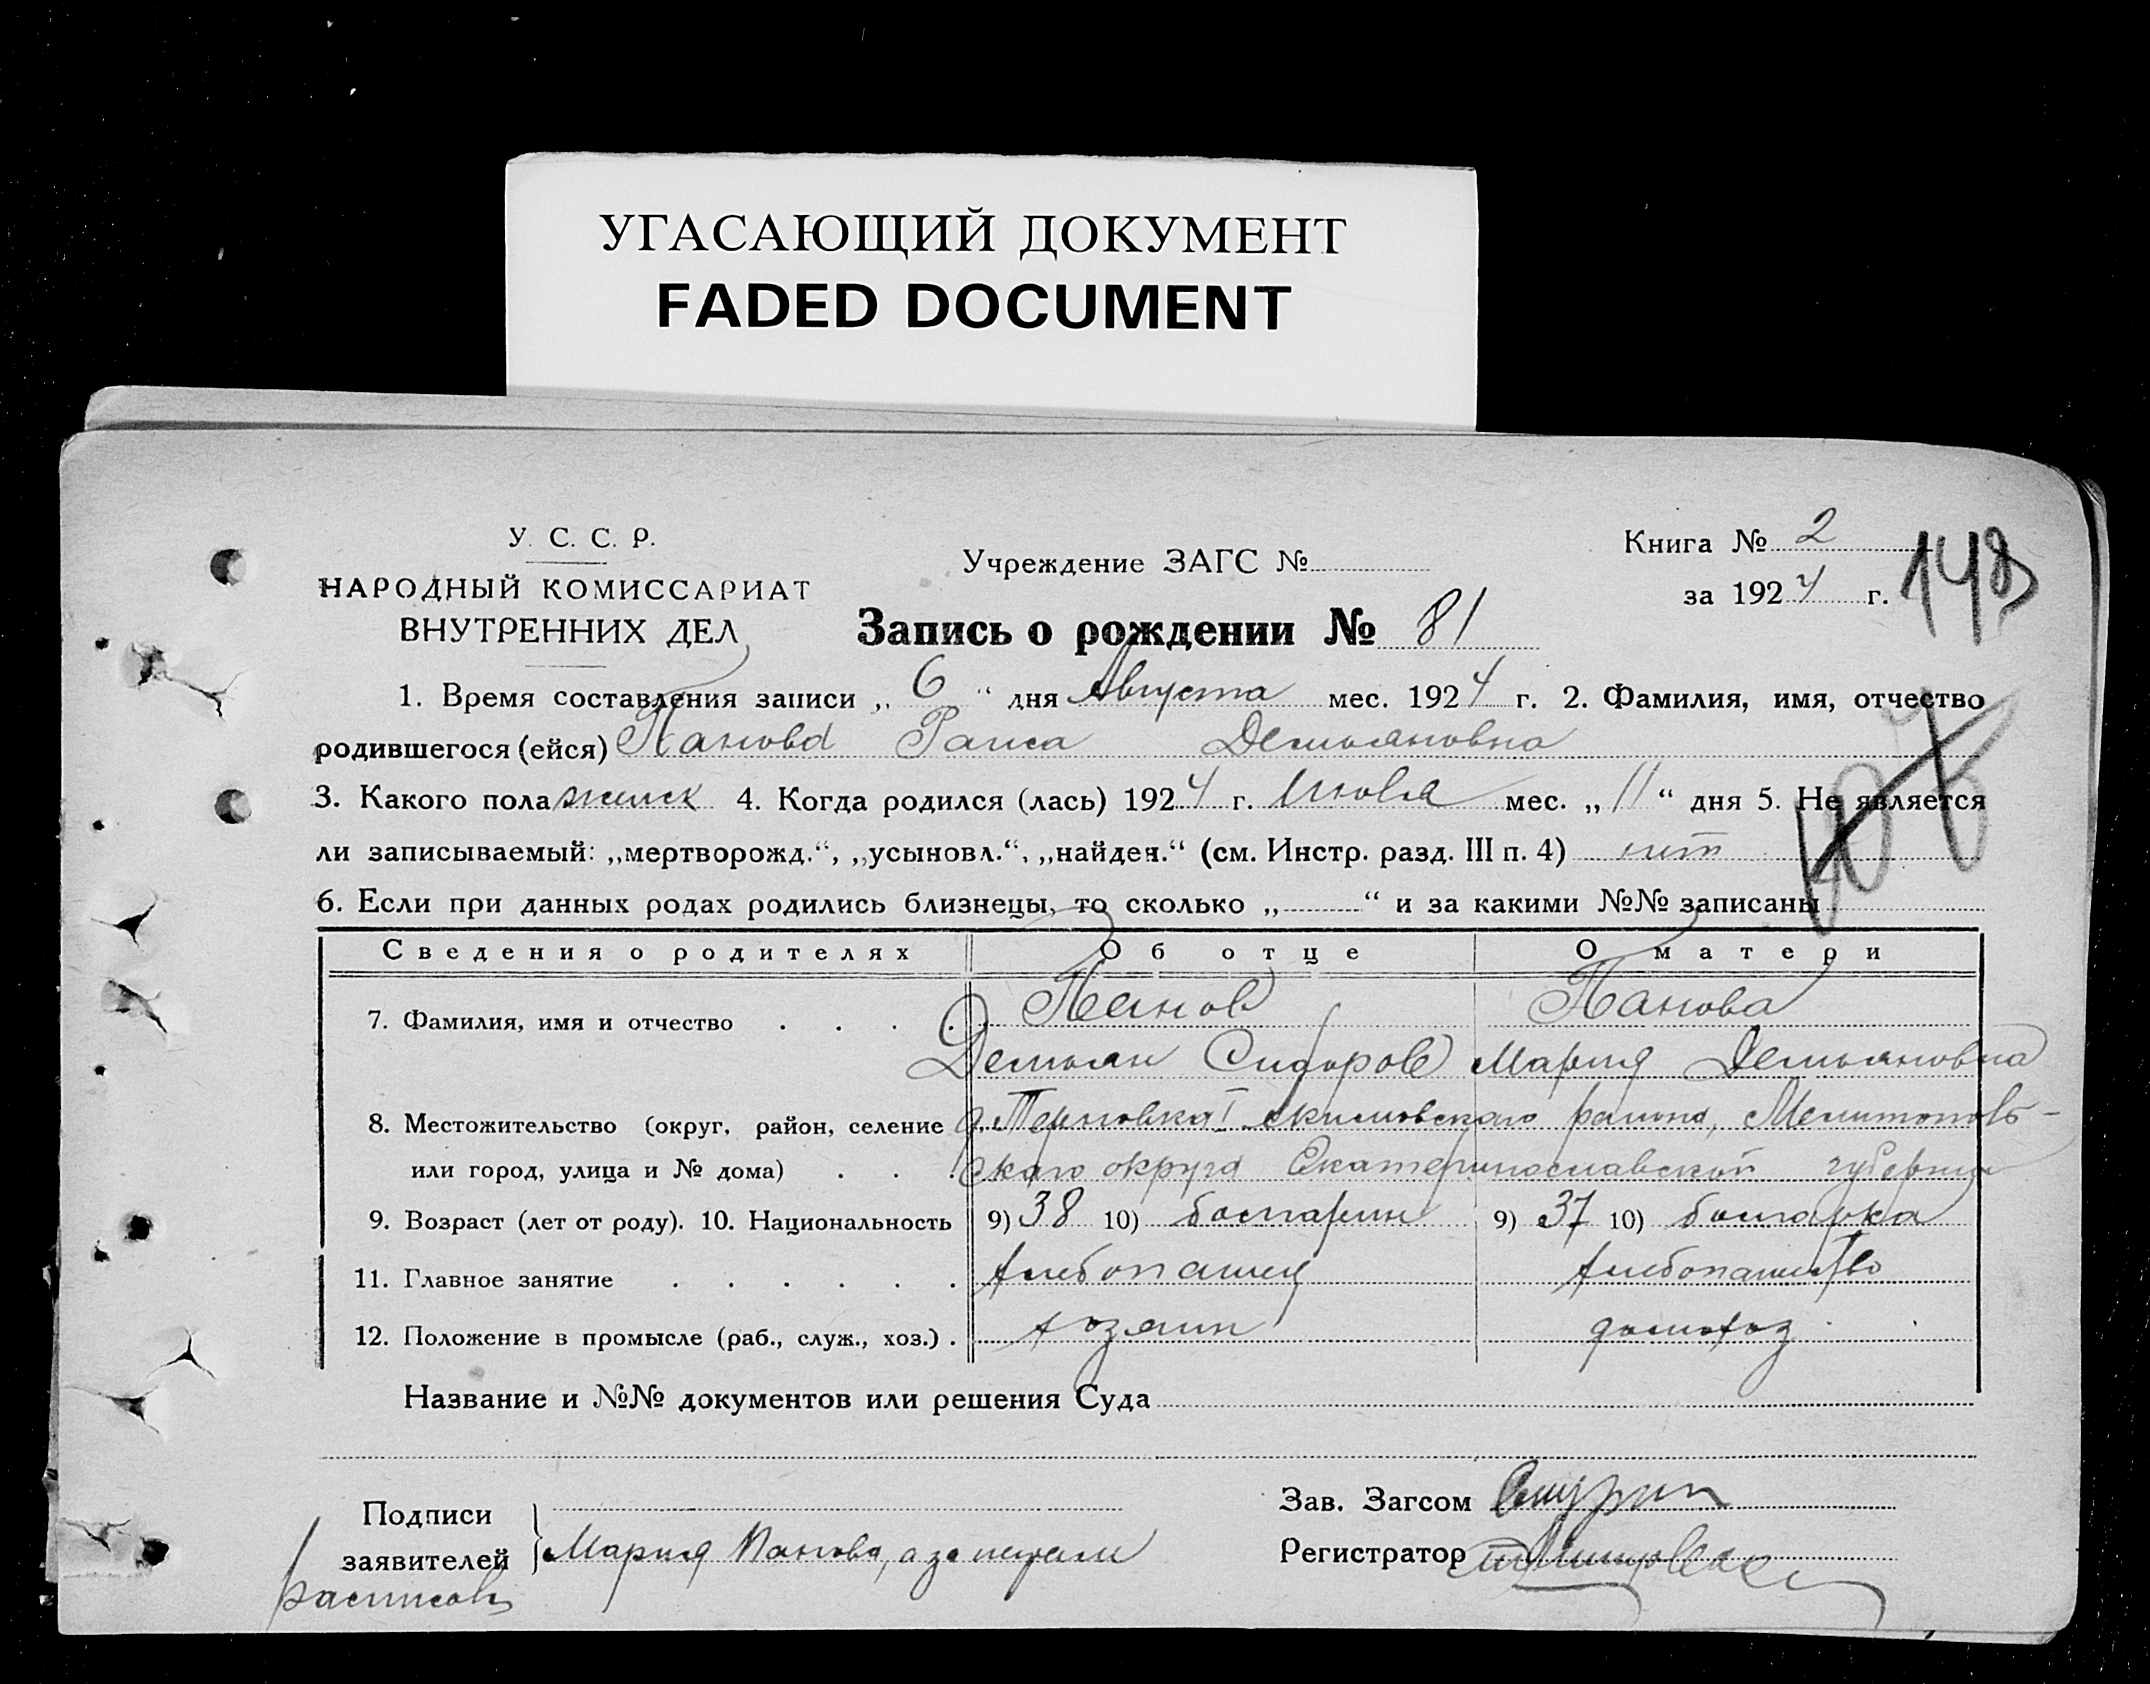 УГАСАЮЩИЙ ДОКУМЕНТ
FADED DOCUMENT
У. С. С. Р.
НАРОДНЫЙ КОМИССАРИАТ
ВНУТРЕННИХ ДЕЛ
Учреждение ЗАГС №
Книга № 2
за 1924 г.
148
Запись о рождении № 81
1. Время составления записи „ 6 “ дня Августа мес. 1924 г. 2. Фамилия, имя, отчество
родившегося (ейся) Панова Раиса Демьяновна
3. Какого пола женск 4. Когда родился (лась) 1924 г. Июля мес. „ 11 “ дня 5. Не является
ли записываемый: „мертворожд.“, „усыновл.“, „найден.“ (см. Инстр. разд. III п. 4) нет
6. Если при данных родах родились близнецы, то сколько „ “ и за какими №№ записаны
Сведения о родителях Об отце О матери
7. Фамилия, имя и отчество Панов Панова
Демьян Сидоров Мария Демьяновна
8. Местожительство (округ, район, селение д. Терновка I Акимовского района, Мелитополь-
или город, улица и № дома) ского округа Екатеринославской губернии
9. Возраст (лет от роду). 10. Национальность 9) 38 10) болгарин 9) 37 10) болгарка
11. Главное занятие хлебопашец хлебопашество
12. Положение в промысле (раб., служ., хоз.) хозяин домохоз
Название и №№ документов или решения Суда
Подписи
заявителей } Мария Панова, а за
расписов
Зав. Загсом
Регистратор